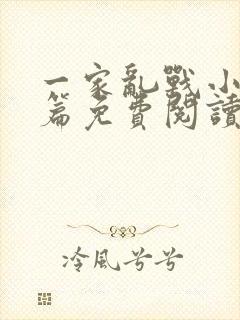 一家亂戰小
篇免費閱讀
冷風兮兮